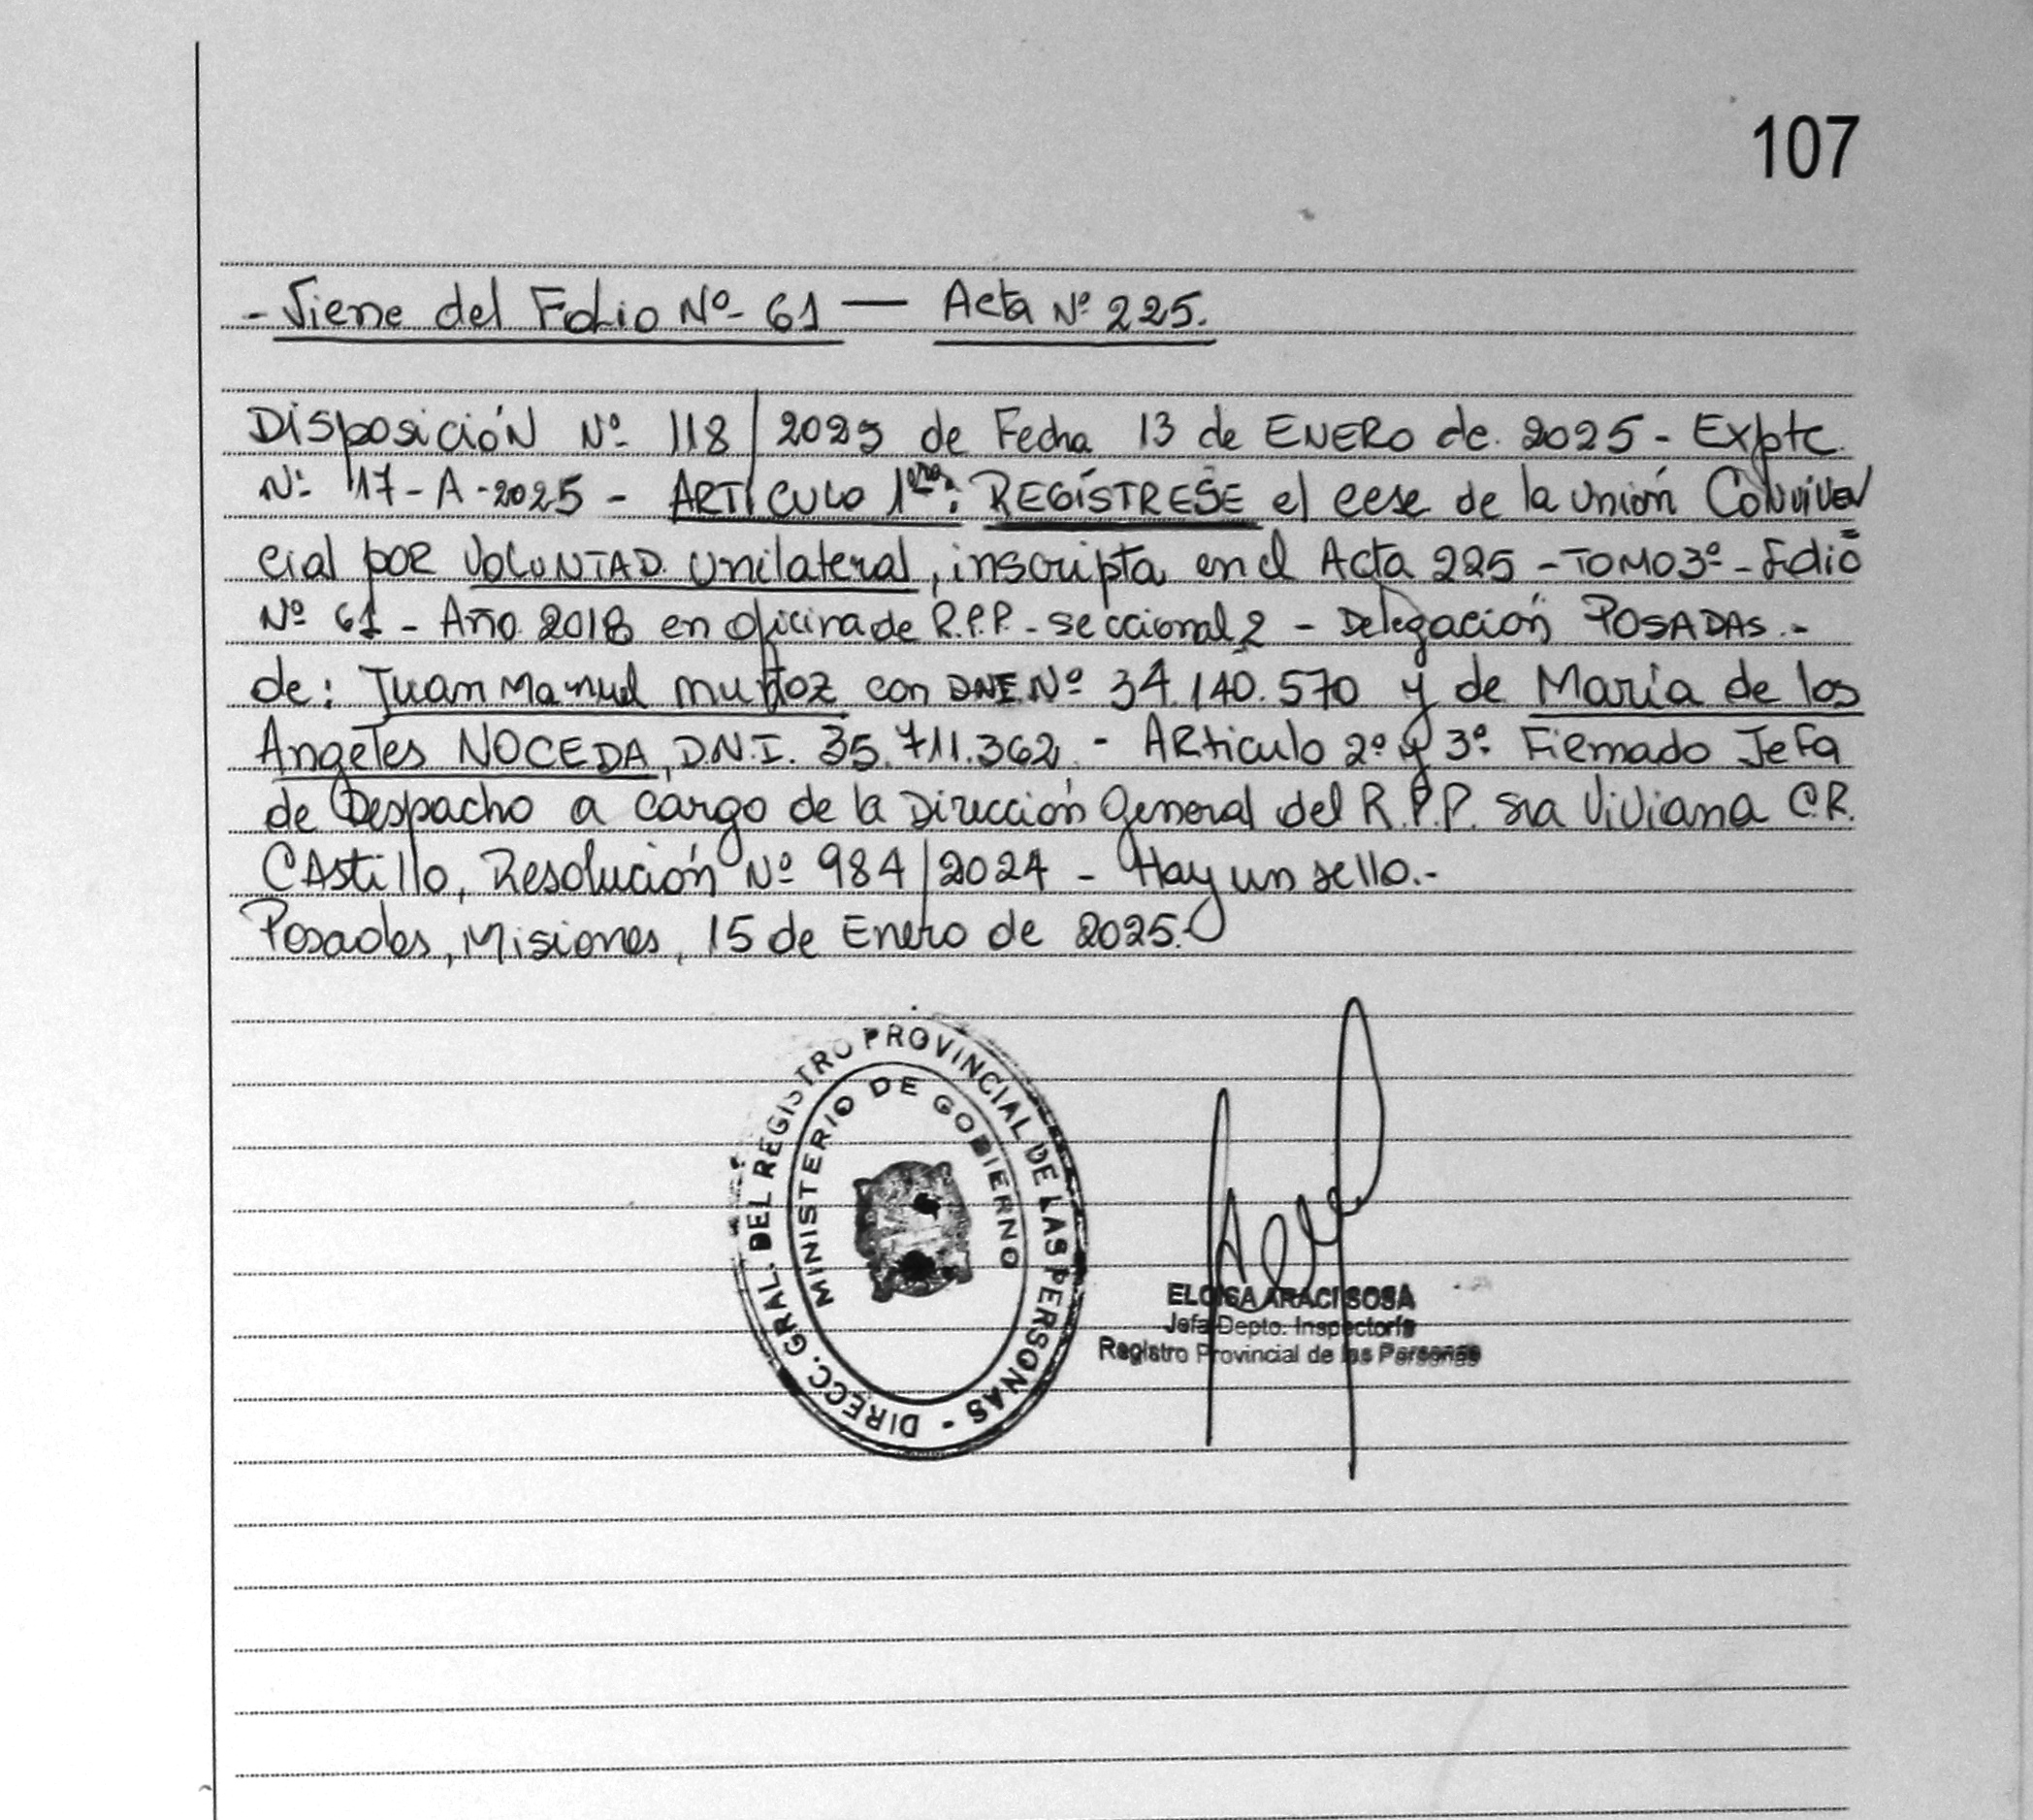 107
- Viene del Folio Nº 61 — Acta Nº 225.
Disposición Nº 118/2025 de Fecha 13 de ENERO de 2025 - Expte
Nº 17-A-2025 - ARTICULO 1ro: REGÍSTRESE el cese de la Unión Conviven
cial por VOLUNTAD Unilateral, inscripta en el Acta 225 - TOMO 3º - Folio
Nº 61 - Año 2018 en oficina de R.P.P. - seccional 2 - Delegación POSADAS.-
de: Juan Manuel muñoz con DNI Nº 34.140.570 y de María de los
Angeles NOCEDA, D.N.I. 35.711.362 - Articulo 2º y 3º Firmado Jefa
de Despacho a cargo de la Dirección General del R.P.P. Sra Viviana C.R.
CAstillo, Resolución Nº 984/2024 - Hay un sello.-
Posadas, Misiones, 15 de Enero de 2025.-
DIRECC. GRAL. DEL REGISTRO PROVINCIAL DE LAS PERSONAS -
MINISTERIO DE GOBIERNO
ELOISA ARACI SOSA
Jefa Depto. Inspectoría
Registro Provincial de las Personas